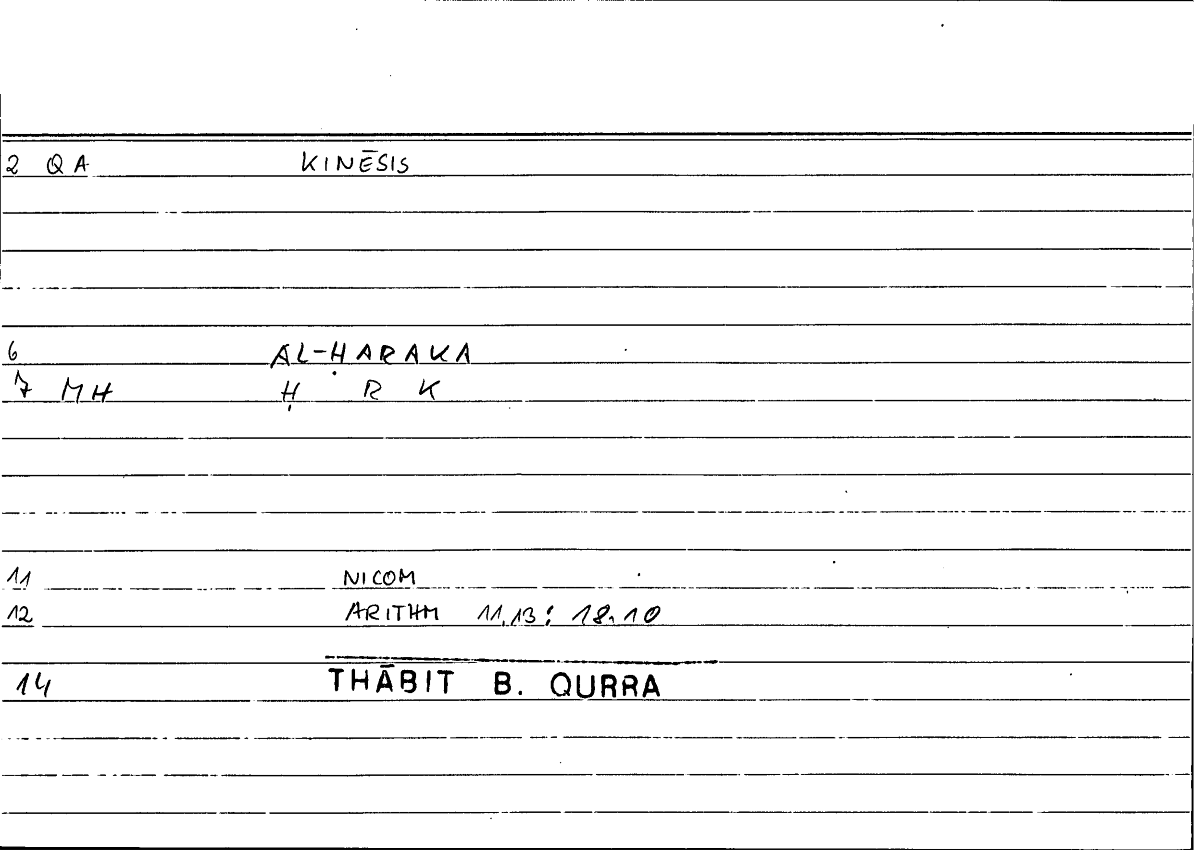 2 QA KINĒSIS
6 AL-ḤARAKA
7 MH Ḥ R K
11 NICOM
12 ARITHM 11,13: 18.10
14 THĀBIT B. QURRA